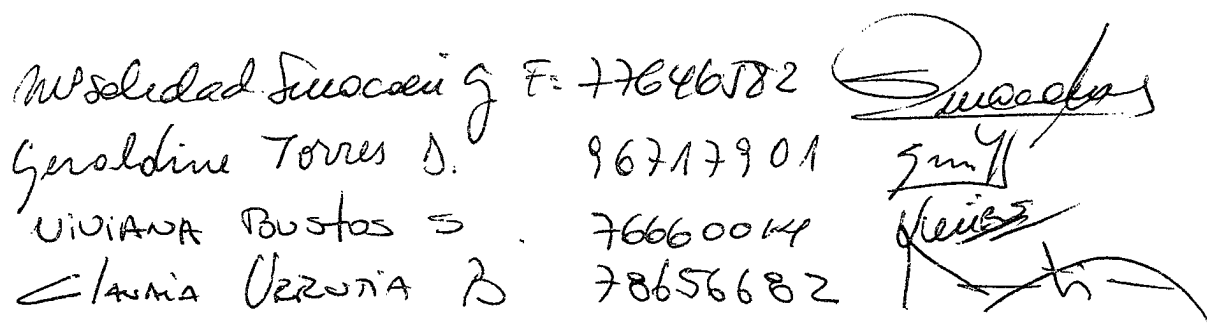 Mª Soledad Simocoeii G F: 77646582
Geraldine Torres D. 96717901
Viviana Bustos S. 76660014
Claudia Urrutia B 78656682